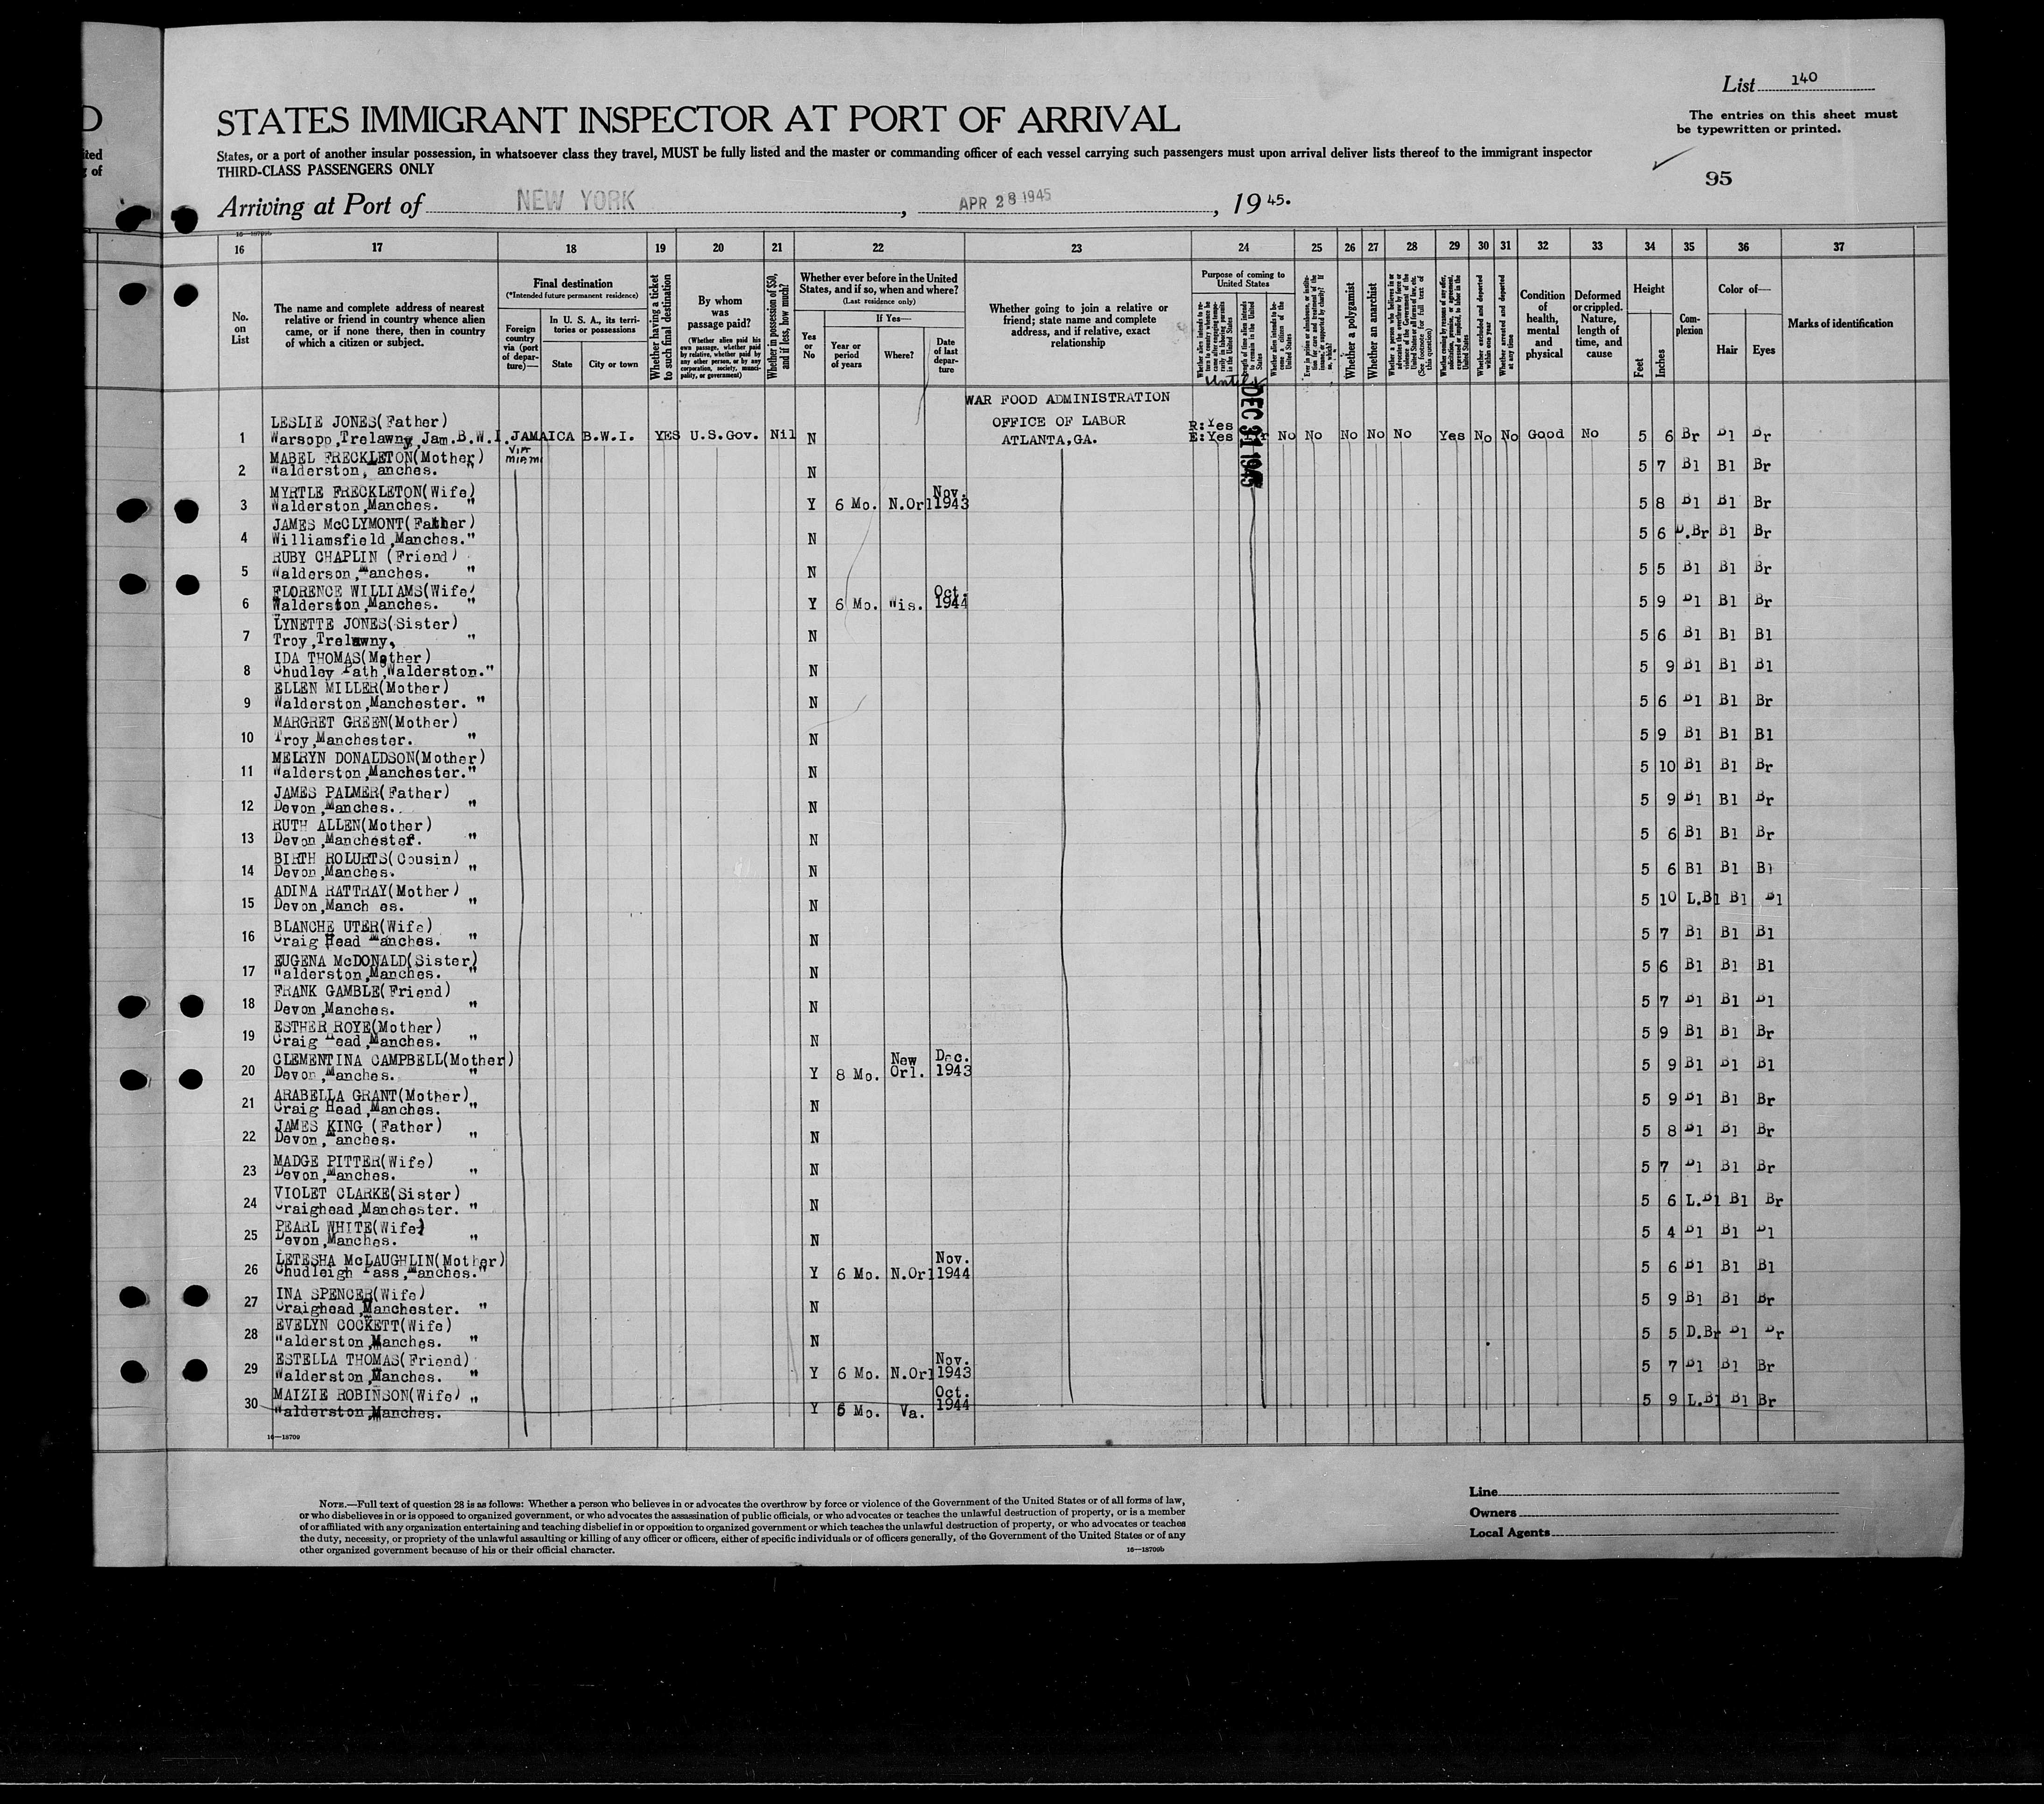 D
ited
g of
List 140
The entries on this sheet must
be typewritten or printed.
STATES IMMIGRANT INSPECTOR AT PORT OF ARRIVAL
States, or a port of another insular possession, in whatsoever class they travel, MUST be fully listed and the master or commanding officer of each vessel carrying such passengers must upon arrival deliver lists thereof to the immigrant inspector
THIRD-CLASS PASSENGERS ONLY
95
Arriving at Port of NEW YORK, APR 28 1945, 1945.
16 17 18 19 20 21 22 23 24 25 26 27 28 29 30 31 32 33 34 35 36 37
No. on List
The name and complete address of nearest
relative or friend in country whence alien
came, or if none there, then in country
of which a citizen or subject.
Final destination
(*Intended future permanent residence)
Foreign country via (port of departure)—
In U. S. A., its territories or possessions
State
City or town
Whether having a ticket to such final destination
By whom was passage paid?
(Whether alien paid his own passage, whether paid by relative, whether paid by any other person, or by any corporation, society, municipality, or government)
Whether in possession of $50, and if less, how much?
Whether ever before in the United States, and if so, when and where?
(Last residence only)
Yes or No
If Yes—
Year or period of years
Where?
Date of last departure
Whether going to join a relative or
friend; state name and complete
address, and if relative, exact
relationship
Purpose of coming to United States
Whether a polygamist
Whether an anarchist
Condition of health, mental and physical
Deformed or crippled. Nature, length of time, and cause
Height
Feet
Inches
Complexion
Color of—
Hair
Eyes
Marks of identification
Until
DEC 31 1945
WAR FOOD ADMINISTRATION
OFFICE OF LABOR
ATLANTA,GA.
LESLIE JONES(Father)
1 Warsopp,Trelawny,Jam.B.W.I. JAMAICA B.W.I. YES U.S.Gov. Nil N R:Yes E:Yes No No No No No Yes No No Good No 5 6 Br Bl Br
VIA MIAMI
MABEL FRECKLETON(Mother)
2 Walderston, anches. " N 5 7 Bl Bl Br
MYRTLE FRECKLETON(Wife)
3 Walderston,Manches. " Y 6 Mo. N.Orl Nov. 1943 5 8 Bl Bl Br
JAMES McCLYMONT(Father)
4 Williamsfield,Manches." N 5 6 D.Br Bl Br
RUBY CHAPLIN (Friend)
5 Walderson,Manches. " N 5 5 Bl Bl Br
FLORENCE WILLIAMS(Wife)
6 Walderston,Manches. " Y 6 Mo. Wis. Oct. 1944 5 9 Bl Bl Br
LYNETTE JONES(Sister)
7 Troy,Trelawny, " N 5 6 Bl Bl Bl
IDA THOMAS(Mother)
8 Chudley Path,Walderston." N 5 9 Bl Bl Bl
ELLEN MILLER(Mother)
9 Walderston,Manchester. " N 5 6 Bl Bl Br
MARGRET GREEN(Mother)
10 Troy,Manchester. " N 5 9 Bl Bl Bl
MELRYN DONALDSON(Mother)
11 Walderston,Manchester." N 5 10 Bl Bl Br
JAMES PALMER(Father)
12 Devon,Manches. " N 5 9 Bl Bl Br
RUTH ALLEN(Mother)
13 Devon,Manchester. " N 5 6 Bl Bl Br
BIRTH ROLURTS(Cousin)
14 Devon,Manches. " N 5 6 Bl Bl Bl
ADINA RATTRAY(Mother)
15 Devon,Manch es. " N 5 10 L.Bl Bl Bl
BLANCHE UTER(Wife)
16 Craig Head Manches. " N 5 7 Bl Bl Bl
EUGENA McDONALD(Sister)
17 Walderston,Manches. " N 5 6 Bl Bl Bl
FRANK GAMBLE(Friend)
18 Devon,Manches. " N 5 7 Bl Bl Bl
ESTHER ROYE(Mother)
19 Craig Head,Manches. " N 5 9 Bl Bl Br
CLEMENTINA CAMPBELL(Mother)
20 Devon,Manches. " Y 8 Mo. New Orl. Dec. 1943 5 9 Bl Bl Bl
ARABELLA GRANT(Mother)
21 Craig Head,Manches. " N 5 9 Bl Bl Br
JAMES KING (Father)
22 Devon,Manches. " N 5 8 Bl Bl Br
MADGE PITTER(Wife)
23 Devon,Manches. " N 5 7 Bl Bl Br
VIOLET CLARKE(Sister)
24 Craighead,Manchester. " N 5 6 L.Bl Bl Br
PEARL WHITE(Wife)
25 Devon,Manches. " N 5 4 Bl Bl Bl
LETESHA McLAUGHLIN(Mother)
26 Chudleigh Pass,Manches." Y 6 Mo. N.Orl Nov. 1944 5 6 Bl Bl Bl
INA SPENCER(Wife)
27 Craighead,Manchester. " N 5 9 Bl Bl Br
EVELYN COCKETT(Wife)
28 Walderston,Manches. " N 5 5 D.Br Bl Br
ESTELLA THOMAS(Friend)
29 Walderston,Manches. " Y 6 Mo. N.Orl Nov. 1943 5 7 Bl Bl Br
MAIZIE ROBINSON(Wife) "
30 Walderston,Manches. Y 6 Mo. Va. Oct. 1944 5 9 L.Bl Bl Br
16—18709
NOTE.—Full text of question 28 is as follows: Whether a person who believes in or advocates the overthrow by force or violence of the Government of the United States or of all forms of law,
or who disbelieves in or is opposed to organized government, or who advocates the assassination of public officials, or who advocates or teaches the unlawful destruction of property, or is a member
of or affiliated with any organization entertaining and teaching disbelief in or opposition to organized government or which teaches the unlawful destruction of property, or who advocates or teaches
the duty, necessity, or propriety of the unlawful assaulting or killing of any officer or officers, either of specific individuals or of officers generally, of the Government of the United States or of any
other organized government because of his or their official character.
16—18709b
Line
Owners
Local Agents